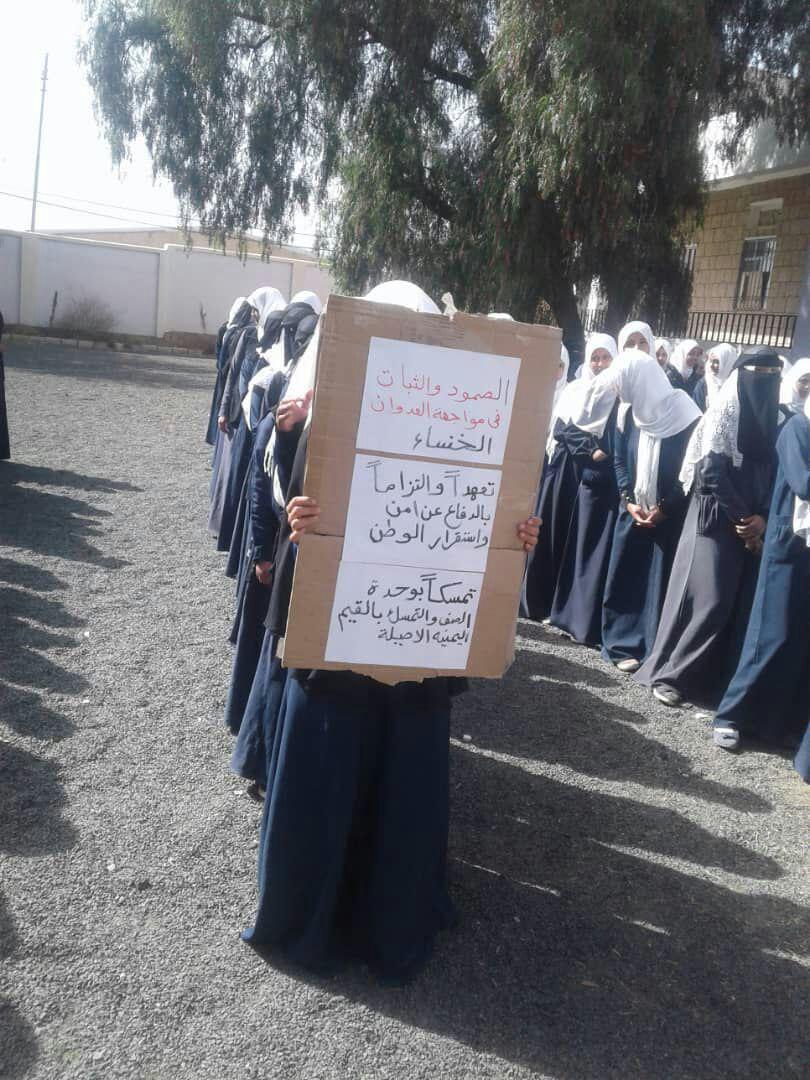 الصمود والثبات
في مواجهة العدوان
الخنساء
تعهداً والتزاماً
بالدفاع عن امن
واستقرار الوطن
تمسكاً بوحدة
الصف والتمسك بالقيم
اليمنيه الاصيلة